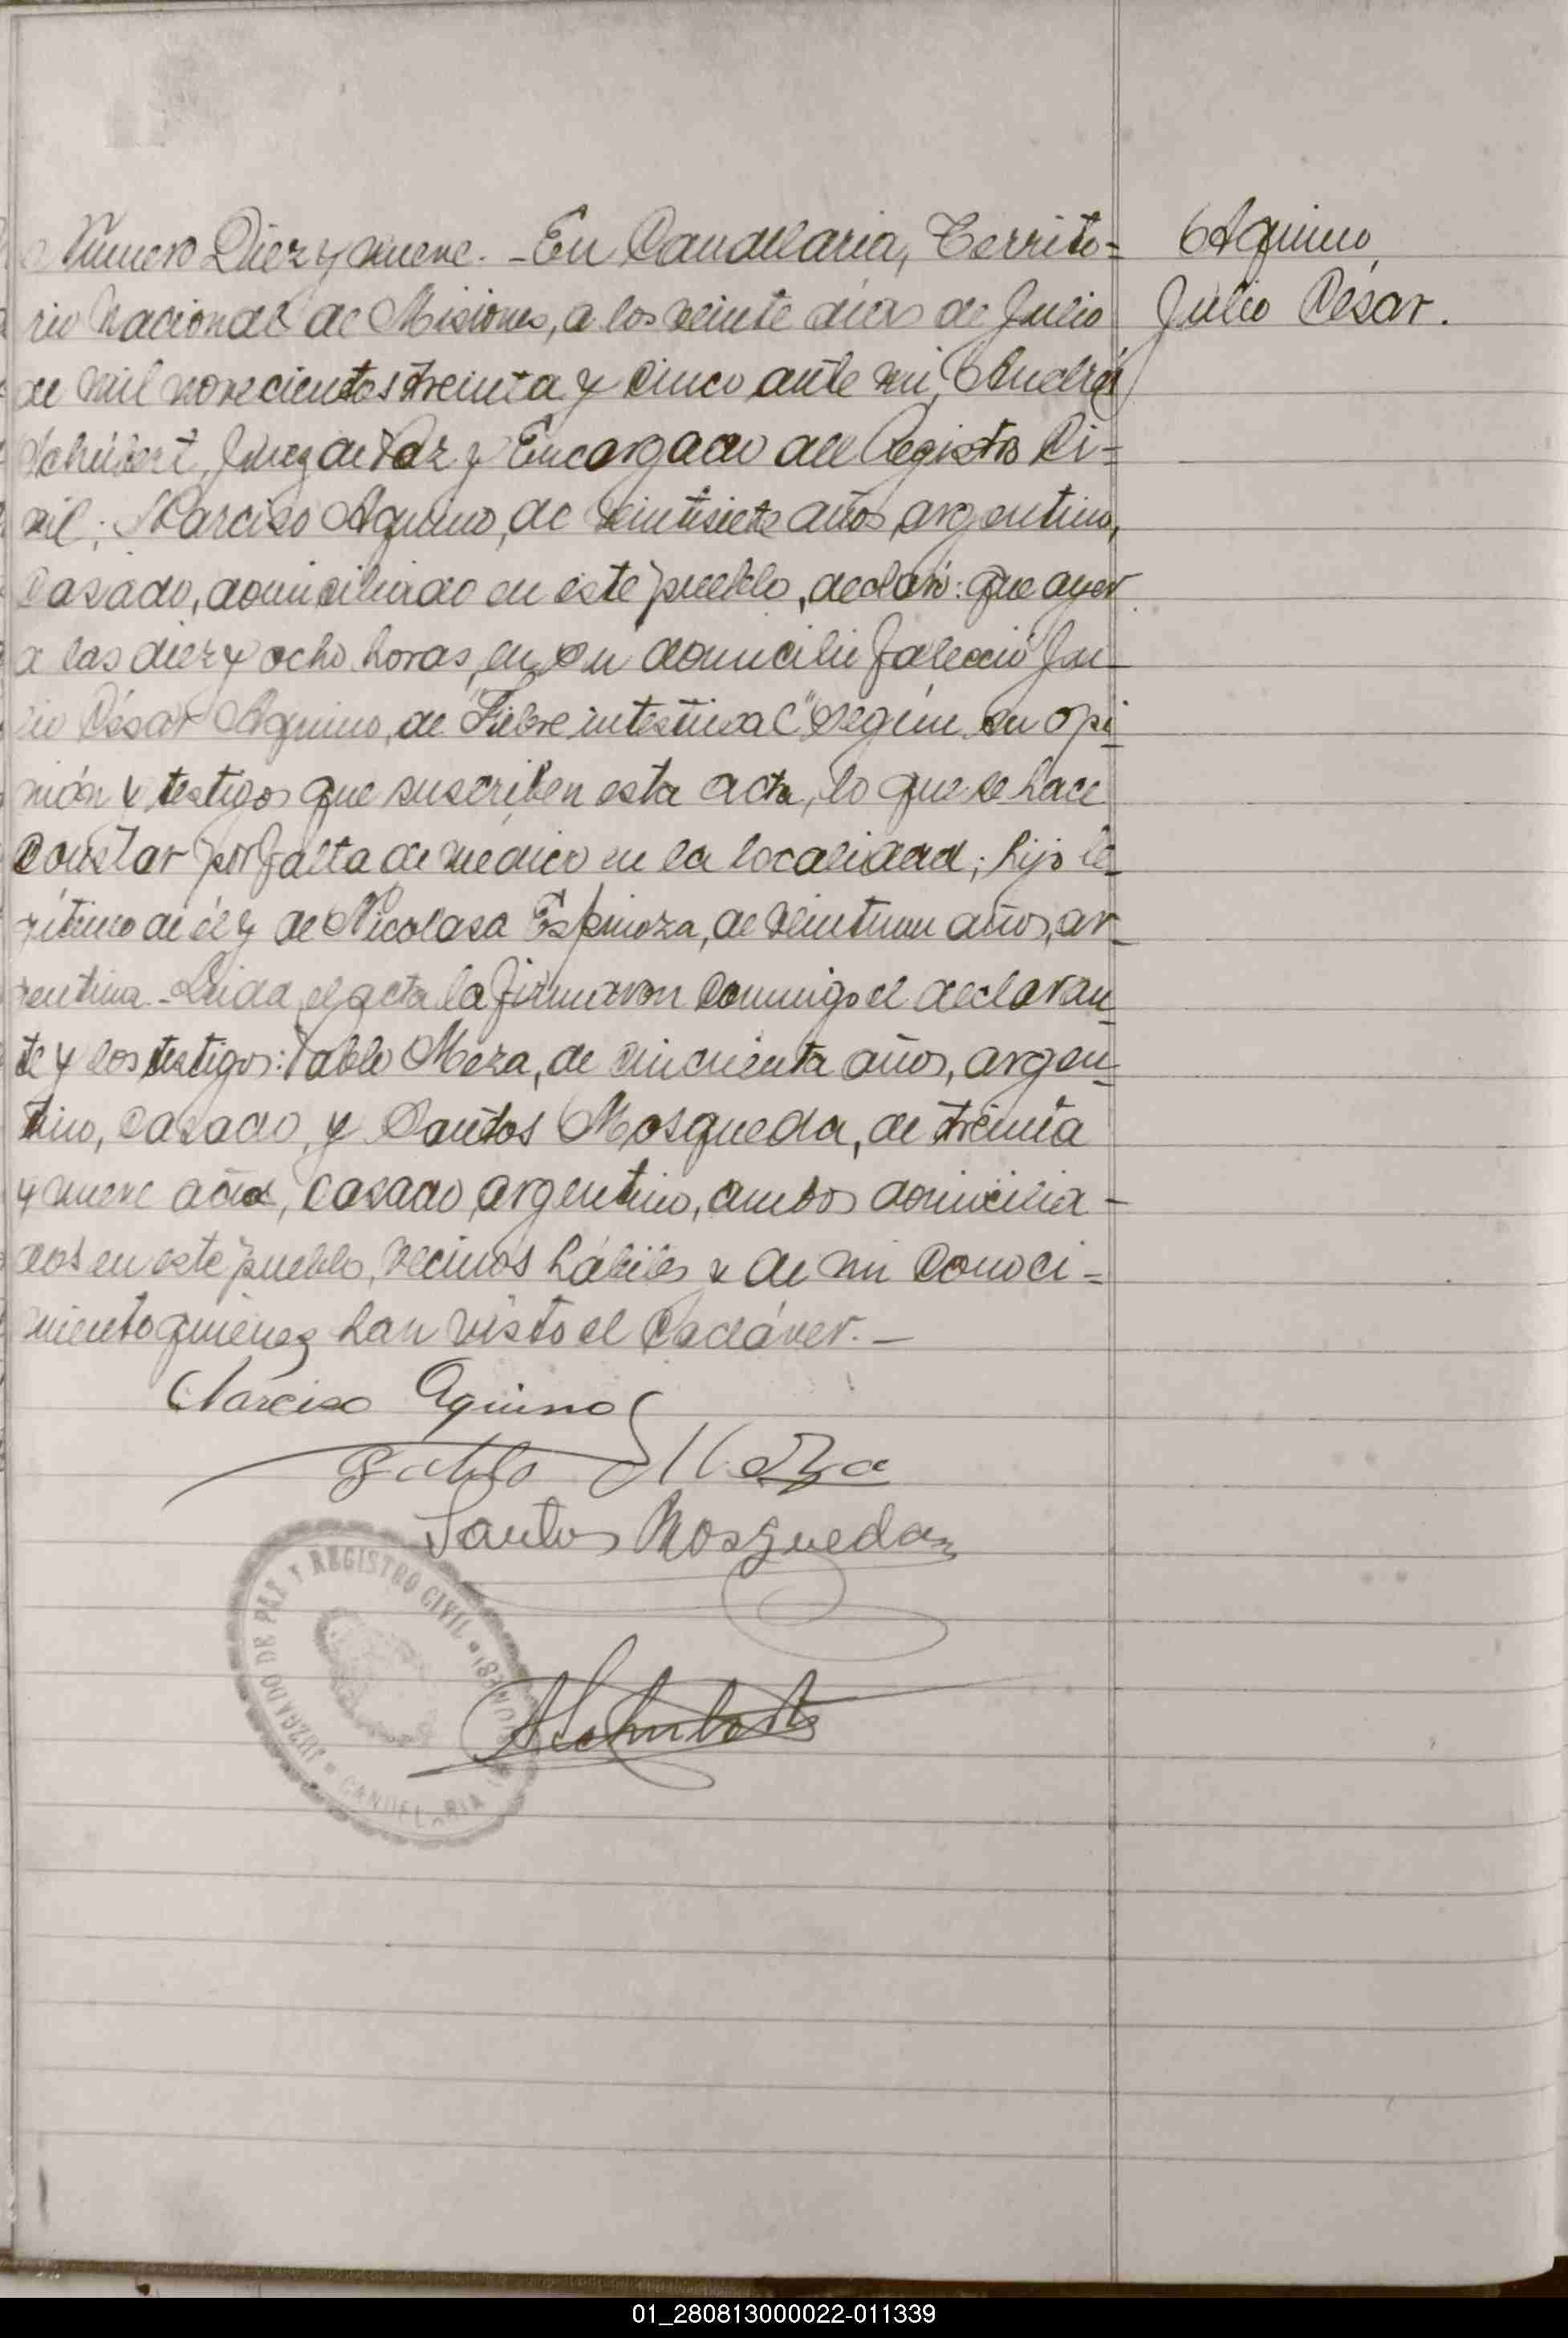 Número Diez y nueve. - En Candelaria, Territo=
rio Nacional de Misiones, a los veinte dias de Julio
de mil novecientos treinta y cinco ante mi, Andrés
Schubert, Juez de Paz y Encargado del Registro Ci=
vil; Narciso Aquino, de veintisiete años, argentino,
casado, domiciliado en este pueblo, declaró: que ayer
a las diez y ocho horas, en su domicilio falleció Ju-
lio César Aquino, de "Fiebre intestinal" según su opi-
nión y testigos que suscriben esta acta, lo que se hace
constar por falta de médico en la localidad; hijo le-
gítimo de él y de Nicolasa Espinoza, de veintiun años, ar-
gentina. - Leida el acta la firmaron conmigo el declaran-
te y los testigos: Pablo Meza, de cincuenta años, argen-
tino, casado, y Santos Mosqueda, de treinta
y nueve años, casado, argentino, ambos domicilia-
dos en este pueblo, vecinos hábiles y de mi conoci=
miento quienes han visto el cadáver. -
Narciso Aquino
Pablo Meza
Santos Mosqueda
ASchubert
JUZGADO DE PAZ Y REGISTRO CIVIL
CANDELARIA
Aquino,
Julio César.
01_280813000022-011339